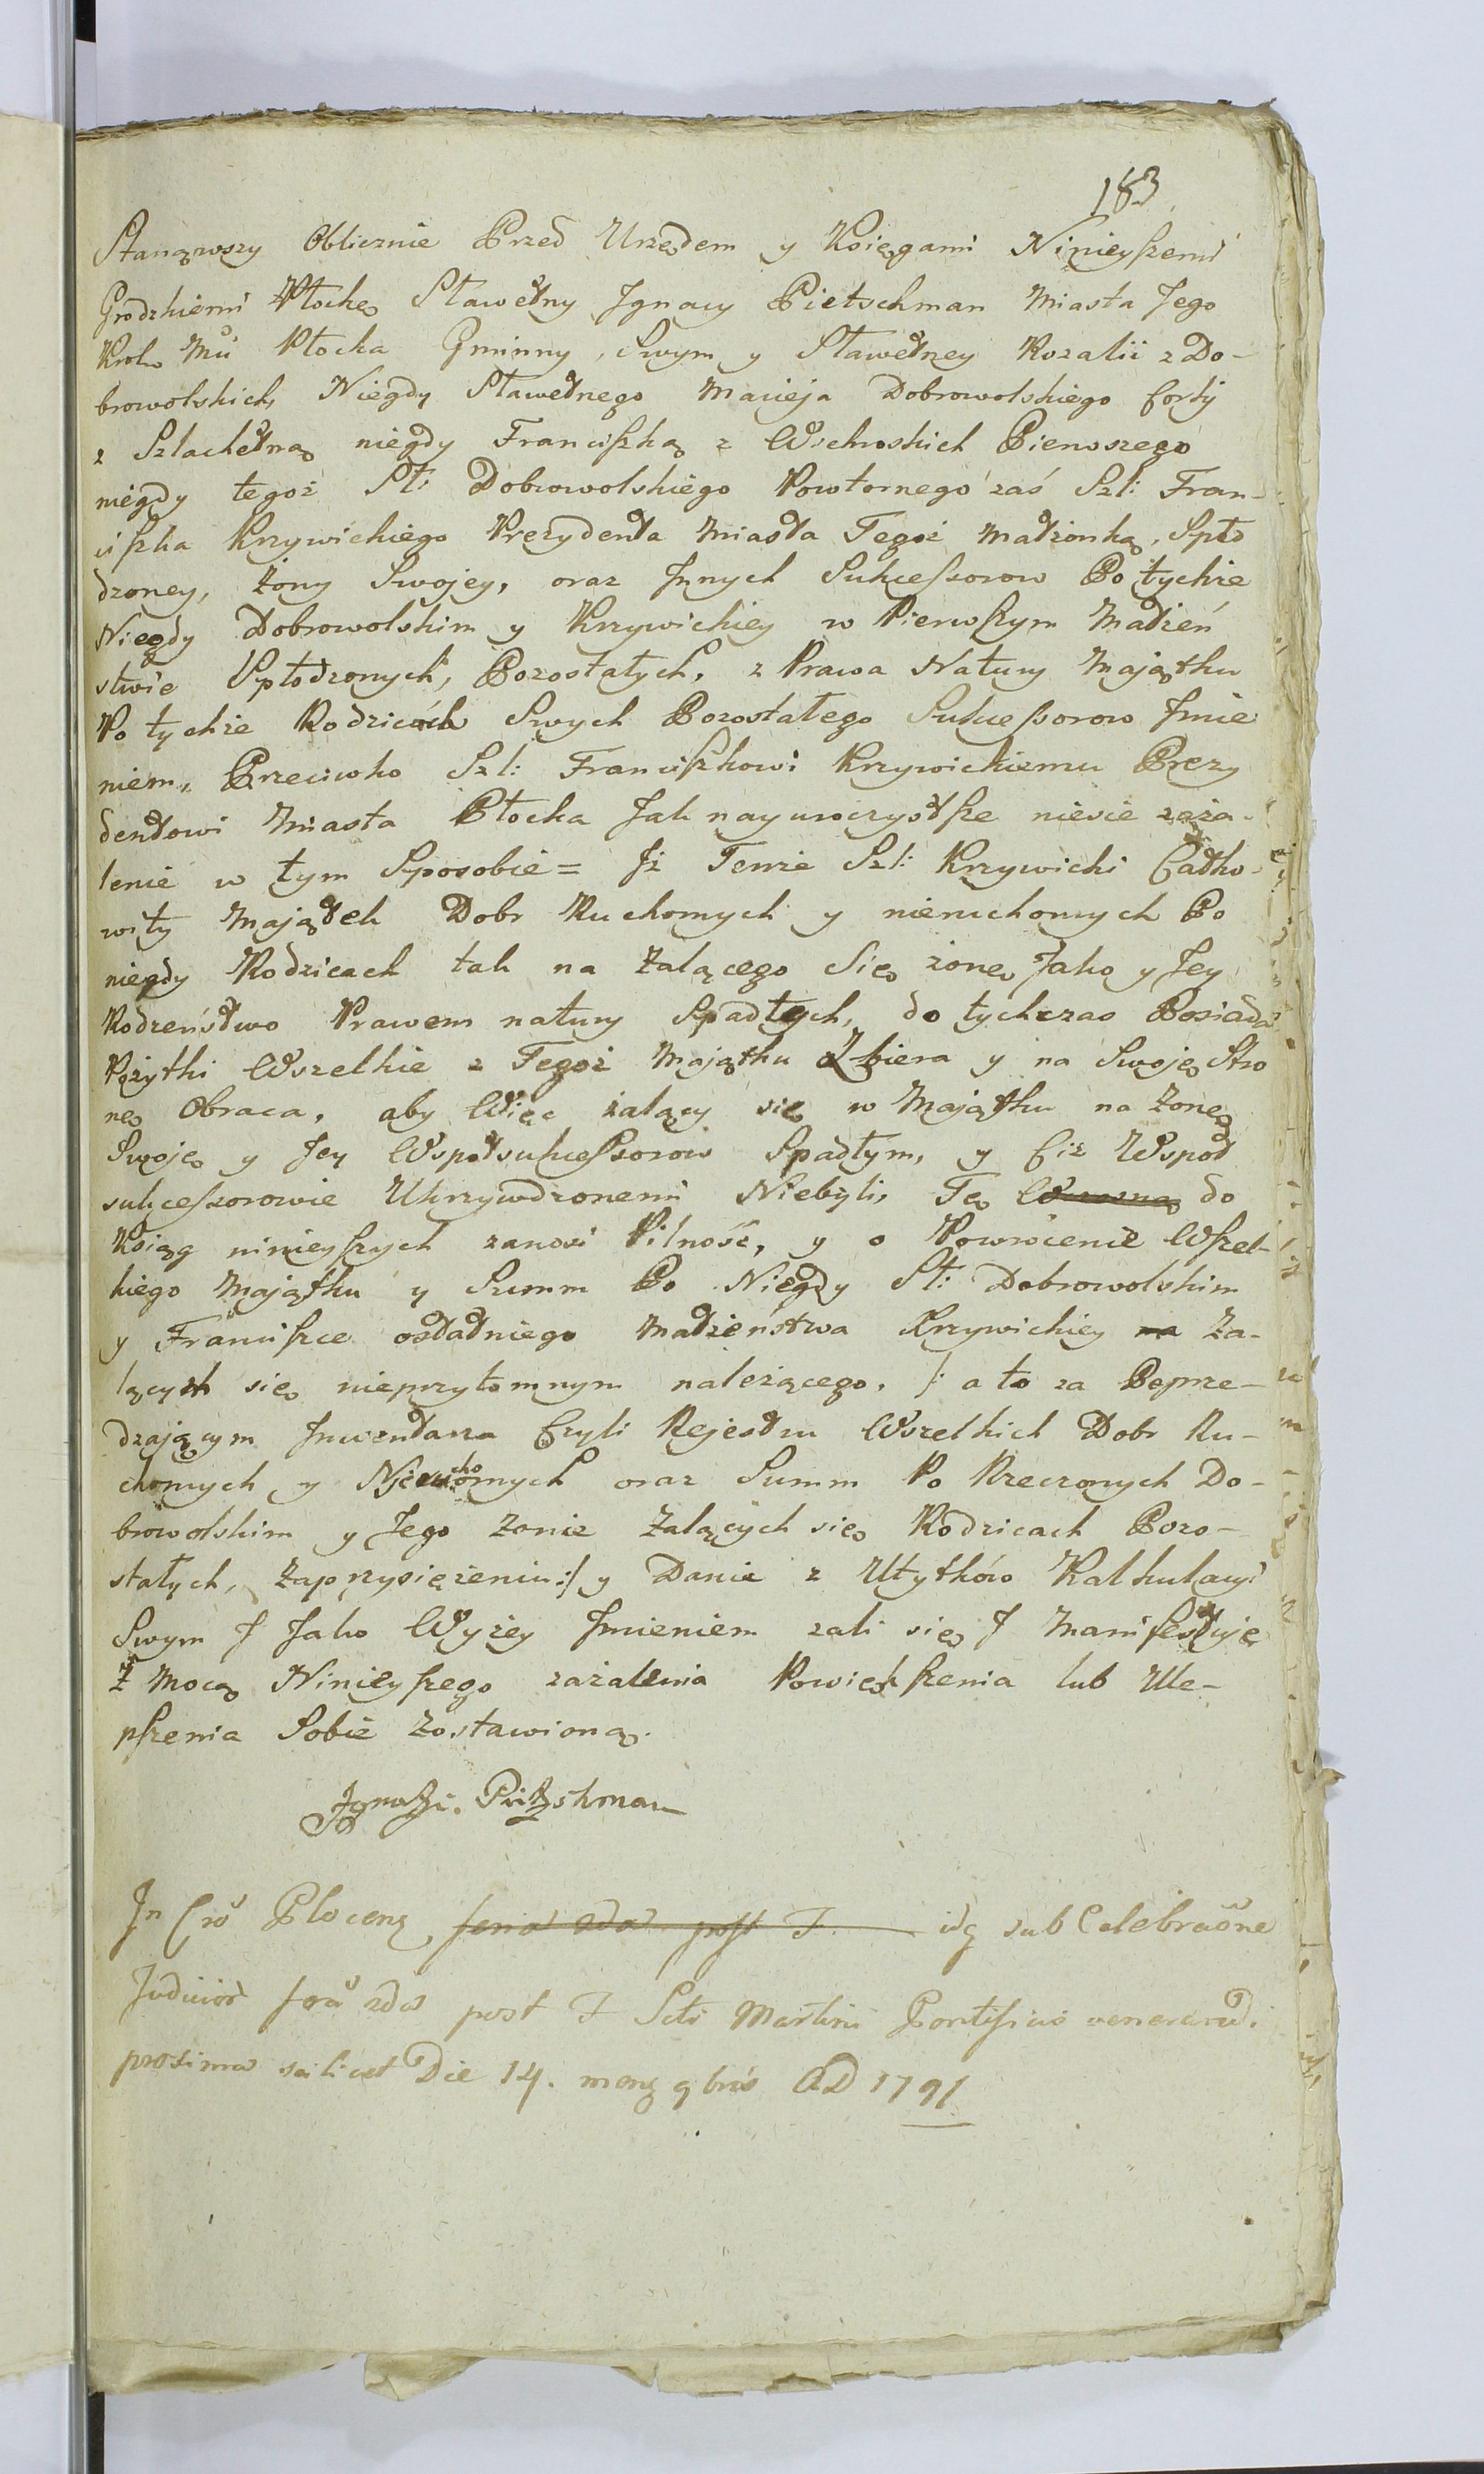 183
Stanąwszy Oblicznie Przed Urzędem y Księgami Ninieyszemi
Grodzkiemi Płockę Sławetny Jgnacy Pietschman Miasta Jego
Krol Mci Płocka Gminny, Swym y Sławetney Rozalii z Do-
browolskich Niegdy Sławetnego Macieja Dobrowolskiego Corki
z Szlachetną niegdy Franciszką z Pierwszego
niegdy tegoż Sł: Dobrowolskiego Powtornego zaś Szl: Fran-
ciszka Krzywickiego Prezydenta Miasta Tegoż Małżonką, Spło
dzoney, Żony Swojey, oraz Jnnych Sukcessorow Po tychże
Niegdy Dobrowolskim y Krzywickiey w Pierwszym Małżeń
stwie Spłodzonych, Pozostałych, z Prawa Natury Majątku
Po tychże Rodzicach Swych Pozostałego Sukcessorow Jmie
niem, Przeciwko Szl: Franciszkowi Krzywickiemu Prezy
dentowi Miasta Płocka Jak nayuroczystsze niesie zaża-
lenie w tym Sposobie = Jż Tenże Szl: Krzywicki Całko-
wity Majątek Dobr Ruchomych y nieruchomych Po
niegdy Rodzicach tak na Żalącego Się żonę Jako y Jey
Rodzeństwo Prawem natury Spadłych, do tychczas Posiada
Pożytki Wszelkie z Tegoż Majątku Zbiera y na Swoję Stro
nę Obraca, aby Więc żalący się w Majątku na Żonę
Swoję y Jey Wspołsukcessorow Spadłym, y Ciż Wspoł
sukcessorowie Ukrzywdzonemi Niebyli, Tę do
Ksiąg ninieyszych zanosi Pilność, y o Powrocenie Wszel-
kiego Majątku y Summ Po Niegdy Sł: Dobrowolskim
y Franciszce ostatniego Małżeństwa Krzywickiey na Ża-
lących się nieprzytomnym należącego, /: a to za Poprze-
dzającym Jnwentarza Czyli Rejestru Wszelkich Dobr Ru-
chomych y Nieruchomych oraz Summ Po Rzeczonych Do-
browolskim y Jego Żonie Żalących się Rodzicach Pozo-
stałych, Zaprzysiężeniu :/ y Danie z Użytków Kalkulacyi
Swym J Jako Wyżey Jmieniem żali się J Manifestuje
Z Mocą Ninieyszego zażalenia Powiększenia lub Ule-
pszenia Sobie Zostawioną.
Jgnatzi. Pitzshman
Jn Cro Plocenz feria 2da post F. idq sub Celebraone
Judicior feria 2da post F Scti Martini Pontificis venerandi
proxima scilicet Die 14. menz 9bris AD 1791